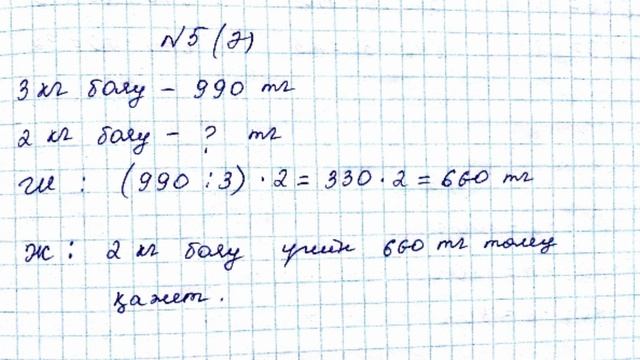 №5 (2)
3 кг бояу - 990 тг
2 кг бояу - ? тг
Ш : (990 : 3) · 2 = 330 · 2 = 660 тг
Ж : 2 кг бояу үшін 660 тг төлеу
қажет .